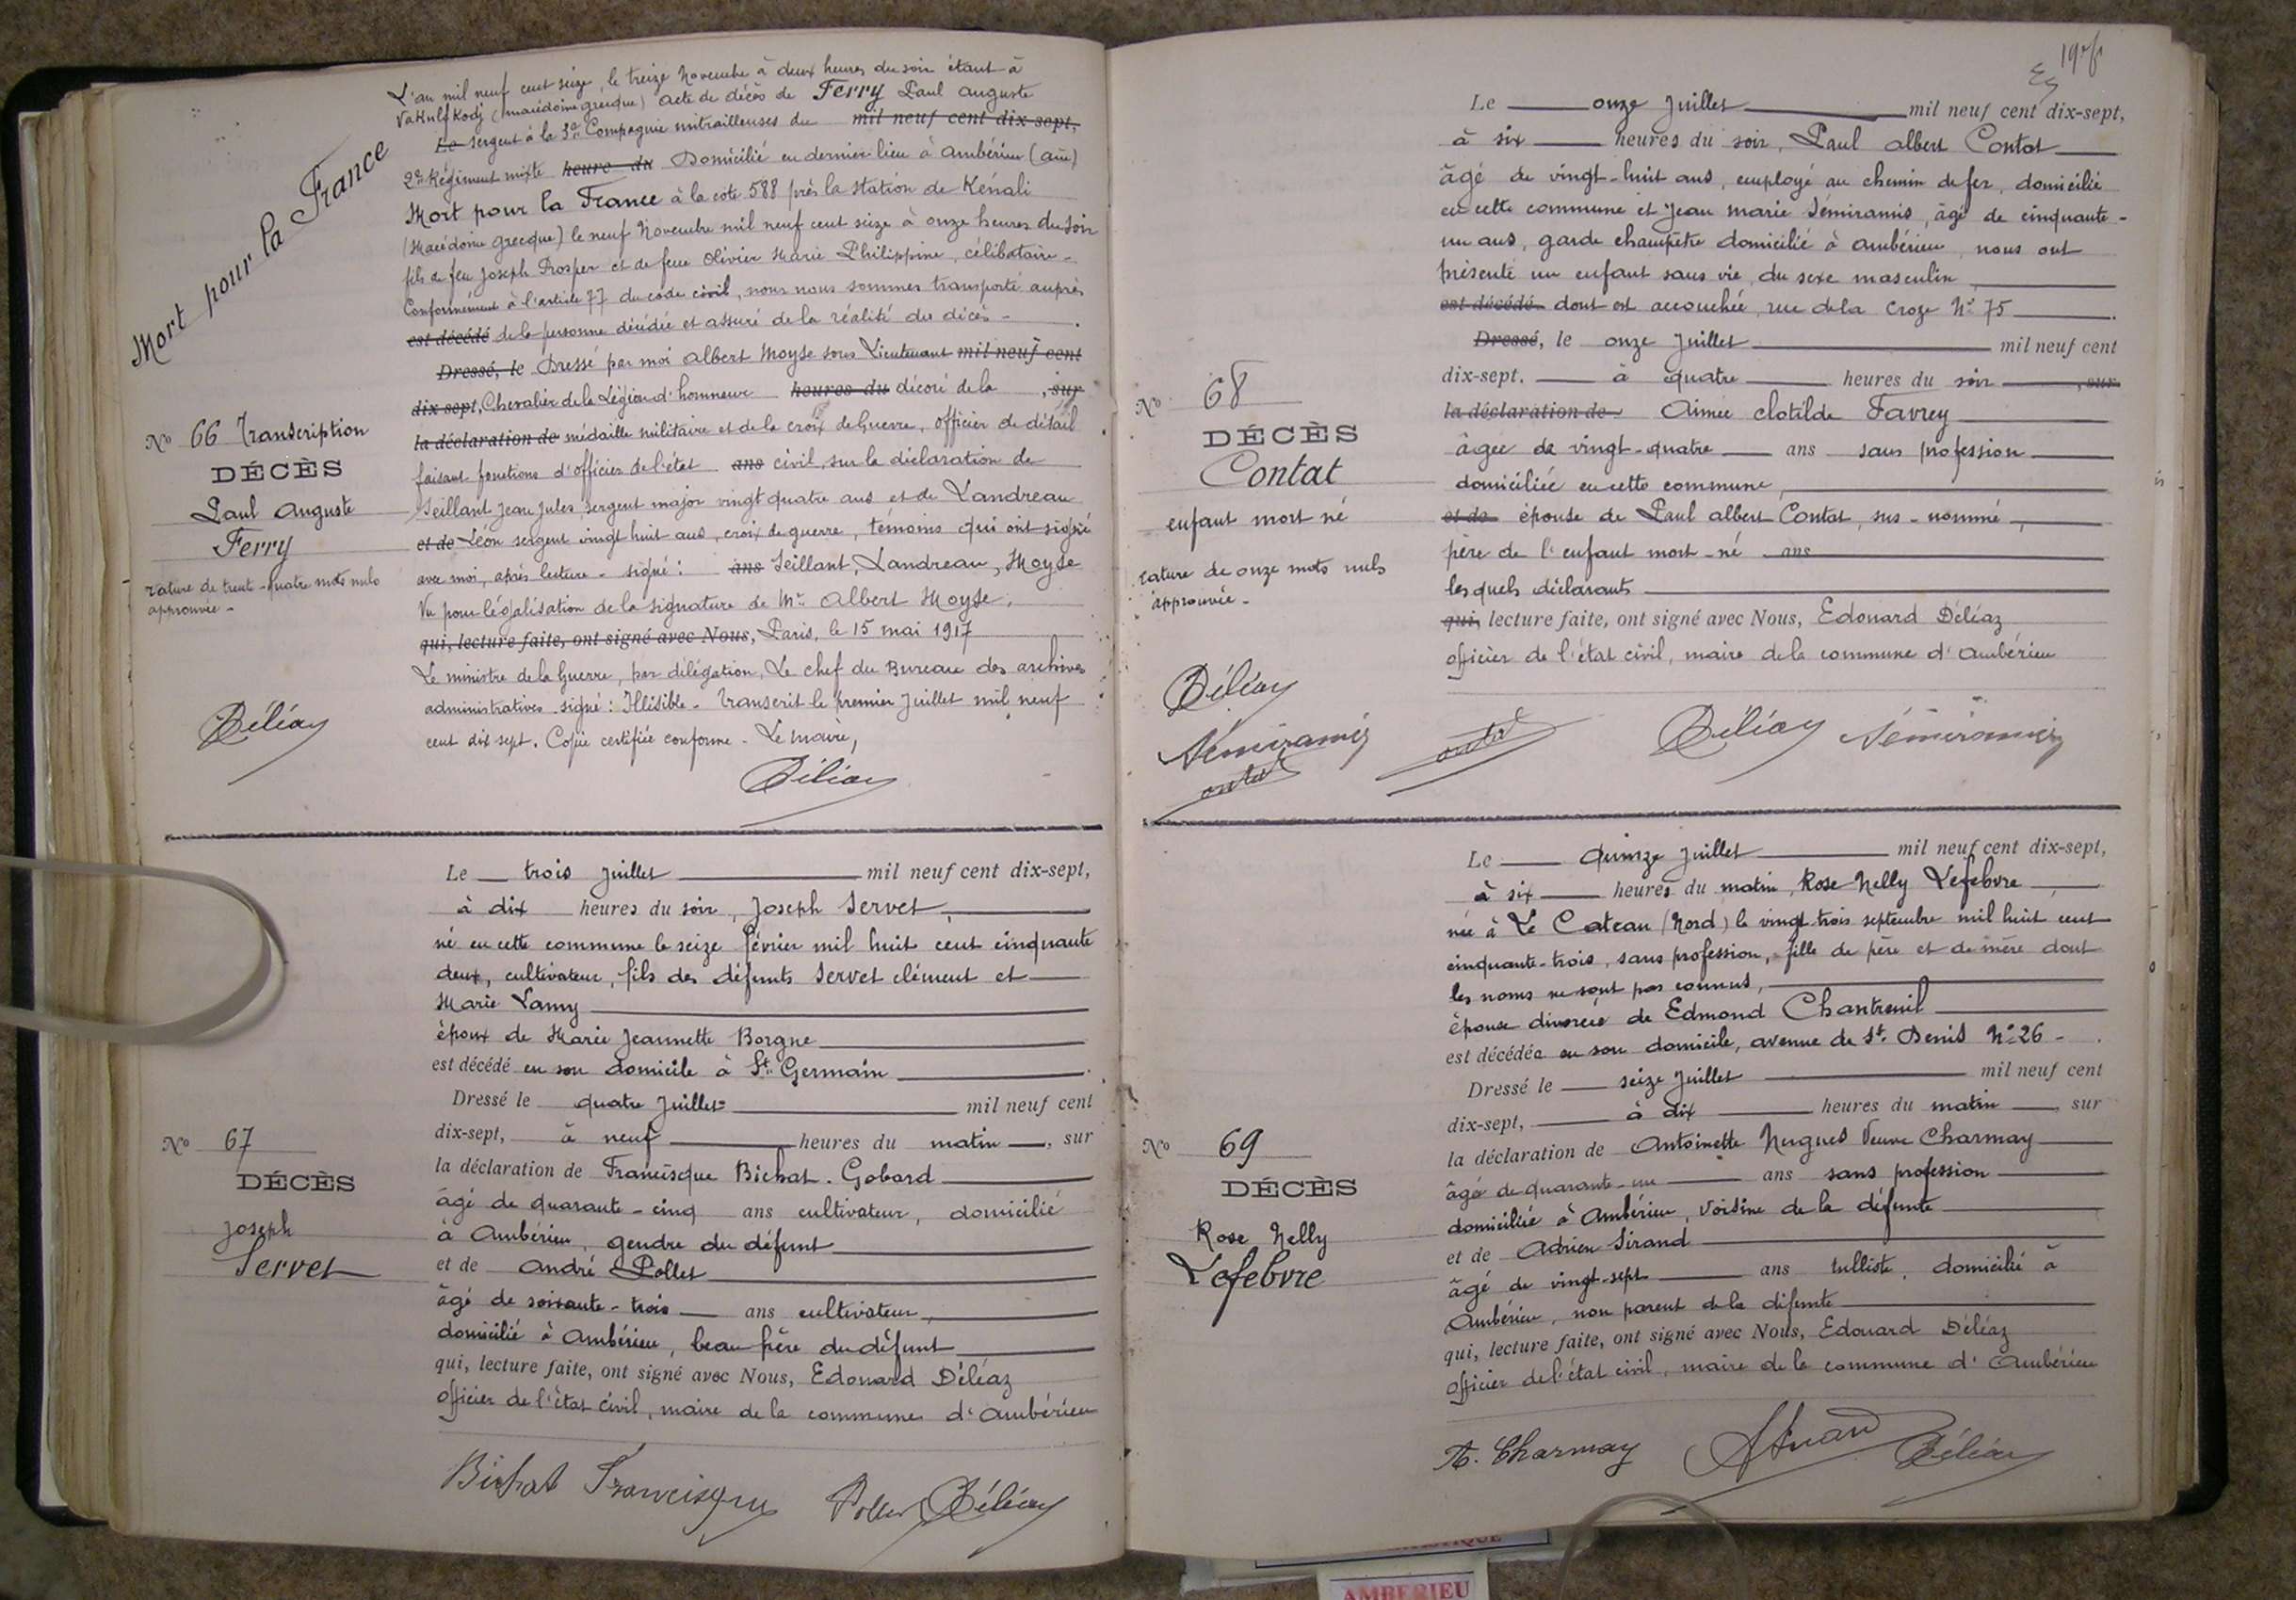 Mort pour la France
L'an mil neuf cent seize, le treize Novembre à deux heures du soir étant à
Vakulf Kodj (macédoine grecque) acte de décès de Ferry Paul Auguste
Le sergent à la 3e Compagnie mitrailleuses du mil neuf cent dix-sept,
2e Régiment mixte heure du Domicilié en dernier lieu à Ambérieu (ain)
Mort pour la France à la cote 588 près la station de Kénali
(Macédoine Grecque) le neuf Novembre mil neuf cent seize à onze heures du soir
fils de feu Joseph Prosper et de feue Olivier Marie Philippine, célibataire -
Conformément à l'article 77 du code civil, nous nous sommes transporté auprès
est décédé de la personne décédée et assuré de la réalité du décès -
Dressé, le Dressé par moi Albert Moyse sous Lieutenant mil neuf cent
dix-sept, Chevalier de la Légion d'honneur heures du décoré de la , sur
la déclaration de médaille militaire et de la croix de Guerre, officier de détail
faisant fonctions d'officier de l'état ans civil, sur la déclaration de
Seillant Jean Jules, sergent major vingt quatre ans et de Landreau
et de Léon sergent vingt huit ans, croix de guerre, témoins qui ont signé
avec moi, après lecture - signé : ans Seillant, Landreau, Moyse
Vu pour légalisation de la signature de Mr Albert Moyse.
qui, lecture faite, ont signé avec Nous, Paris, le 15 mai 1917
Le ministre de la Guerre, par délégation, Le chef du Bureau des archives
administratives signé : Illisible - Transcrit le premier Juillet mil neuf
cent dix sept. Copie certifiée conforme - Le maire,
Déléaz
No 66 Transcription
DÉCÈS
Paul Auguste
Ferry
rature de trente-quatre mots nuls
approuvée -
Déléaz
Le trois Juillet mil neuf cent dix-sept,
à dix heures du soir, Joseph Servet,
né en cette commune le seize février mil huit cent cinquante
deux, cultivateur, fils des défunts Servet clément et
Marie Lamy
époux de Marie Jeannette Borgne
est décédé en son domicile à St Germain
Dressé le quatre Juillet mil neuf cent
dix-sept, à neuf heures du matin, sur
la déclaration de Francisque Bichat-Gobard
âgé de quarante-cinq ans cultivateur, domicilié
à Ambérieu, gendre du défunt
et de André Pollet
âgé de soixante-trois ans cultivateur,
domicilié à Ambérieu, beau frère du défunt
qui, lecture faite, ont signé avec Nous, Edouard Déléaz
officier de l'état civil, maire de la commune d'Ambérieu
Bichat Francisque Pollet Déléaz
No 67
DÉCÈS
Joseph
Servet
Le onze Juillet mil neuf cent dix-sept,
à six heures du soir, Paul Albert Contat
âgé de vingt-huit ans, employé au chemin de fer, domicilié
en cette commune et Jean Marie Sémiramis, âgé de cinquante-
un ans, garde champêtre domicilié à Ambérieu, nous ont
présenté un enfant sans vie, du sexe masculin
est décédé dont est accouchée, rue de la Croze No 75
Dressé, le onze Juillet mil neuf cent
dix-sept. à quatre heures du soir , sur
la déclaration de Aimée Clotilde Favrey
âgée de vingt-quatre ans sans profession
domiciliée en cette commune,
et de épouse de Paul Albert Contat, sus-nommé,
père de l'enfant mort-né ans
lesquels déclarants
qui, lecture faite, ont signé avec Nous, Edouard Déléaz
officier de l'état civil, maire de la commune d'Ambérieu
Déléaz Sémiramis
No 68
DÉCÈS
Contat
enfant mort né
rature de onze mots nuls
approuvée -
Déléaz
Sémiramis
Contat
Le quinze Juillet mil neuf cent dix-sept,
à six heures du matin, Rose Nelly Lefebvre
née à Le Cateau (Nord) le vingt trois septembre mil huit cent
cinquante-trois, sans profession, fille de père et de mère dont
les noms ne sont pas connus,
épouse divorcée de Edmond Chantreuil
est décédée en son domicile, avenue de St Denis No 26 -
Dressé le seize Juillet mil neuf cent
dix-sept, à dix heures du matin, sur
la déclaration de Antoinette Hugues Veuve Charmay
âgée de quarante-un ans sans profession
domiciliée à Ambérieu, voisine de la défunte
et de Adrien Sirand
âgé de vingt-sept ans tulliste, domicilié à
Ambérieu, non parent de la défunte
qui, lecture faite, ont signé avec Nous, Edouard Déléaz
officier de l'état civil, maire de la commune d'Ambérieu
A. Charmay ASirand Déléaz
No 69
DÉCÈS
Rose Nelly
Lefebvre
AMBERIEU